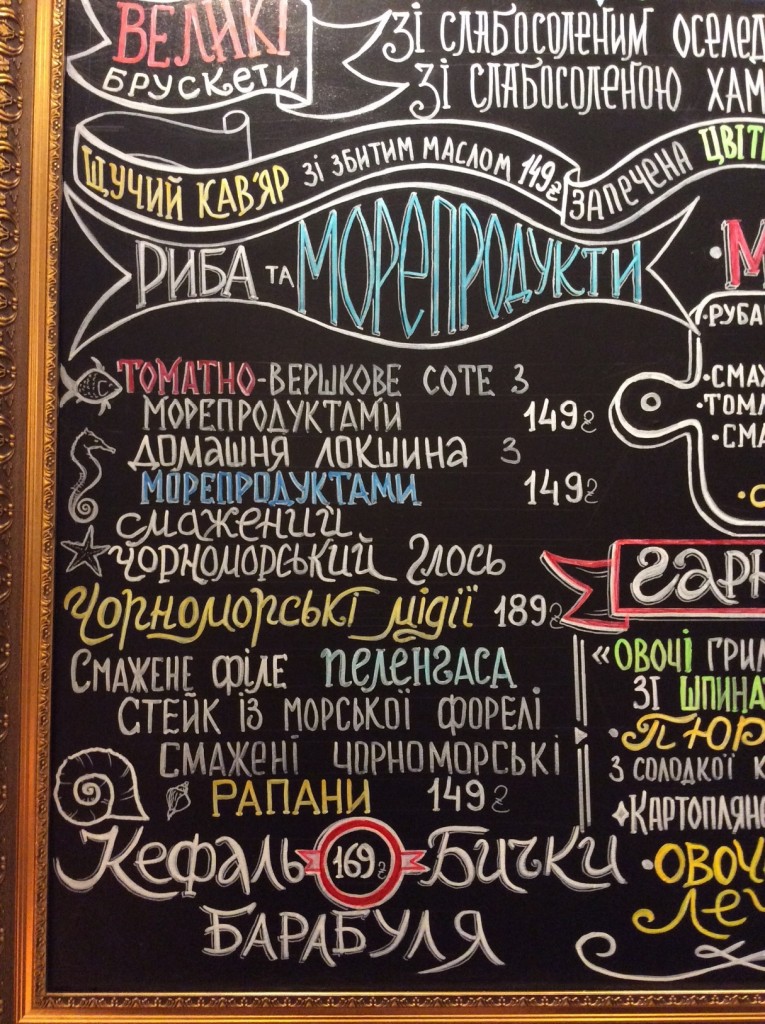 ВЕЛИКІ
БРУСКЕТИ
ЗІ СЛАБОСОЛЕНИМ
ЗІ СЛАБОСОЛЕНОЮ
ЩУЧИЙ КАВ'ЯР ЗІ ЗБИТИМ МАСЛОМ 149₴
ЗАПЕЧЕНА
РИБА ТА МОРЕПРОДУКТИ
ТОМАТНО-ВЕРШКОВЕ СОТЕ З
МОРЕПРОДУКТАМИ 149₴
ДОМАШНЯ ЛОКШИНА З
МОРЕПРОДУКТАМИ 149₴
СМАЖЕНИЙ
ЧОРНОМОРСЬКИЙ ГЛОСЬ
ЧОРНОМОРСЬКІ МІДІЇ 189₴
СМАЖЕНЕ ФІЛЕ ПЕЛЕНГАСА
СТЕЙК ІЗ МОРСЬКОЇ ФОРЕЛІ
СМАЖЕНІ ЧОРНОМОРСЬКІ
РАПАНИ 149₴
Кефаль 169₴ Бички
БАРАБУЛЯ
«ОВОЧІ
ЗІ
З СОЛОДКОЇ